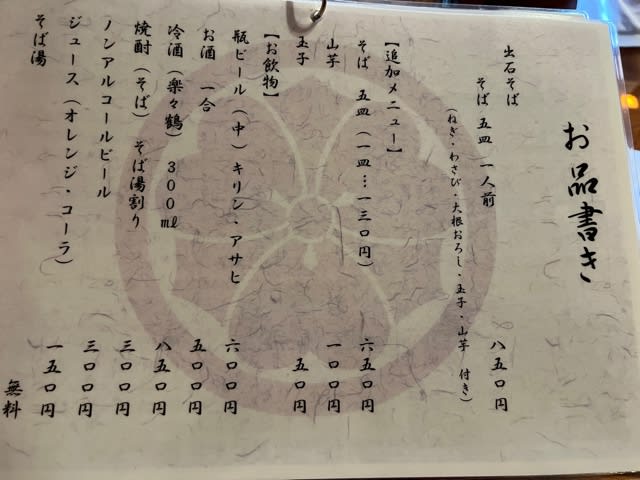 お品書き
出石そば
そば 五皿 一人前 八五〇円
(ねぎ・わさび・大根おろし・玉子・山芋 付き)
【追加メニュー】
そば 五皿(一皿…一三〇円) 六五〇円
山芋 一〇〇円
玉子 五〇円
【お飲物】
瓶ビール(中)キリン・アサヒ 六〇〇円
お酒 一合 五〇〇円
冷酒(楽々鶴) 300㎖ 八五〇円
焼酎(そば)そば湯割り 三〇〇円
ノンアルコールビール 三〇〇円
ジュース(オレンジ・コーラ) 一五〇円
そば湯 無料